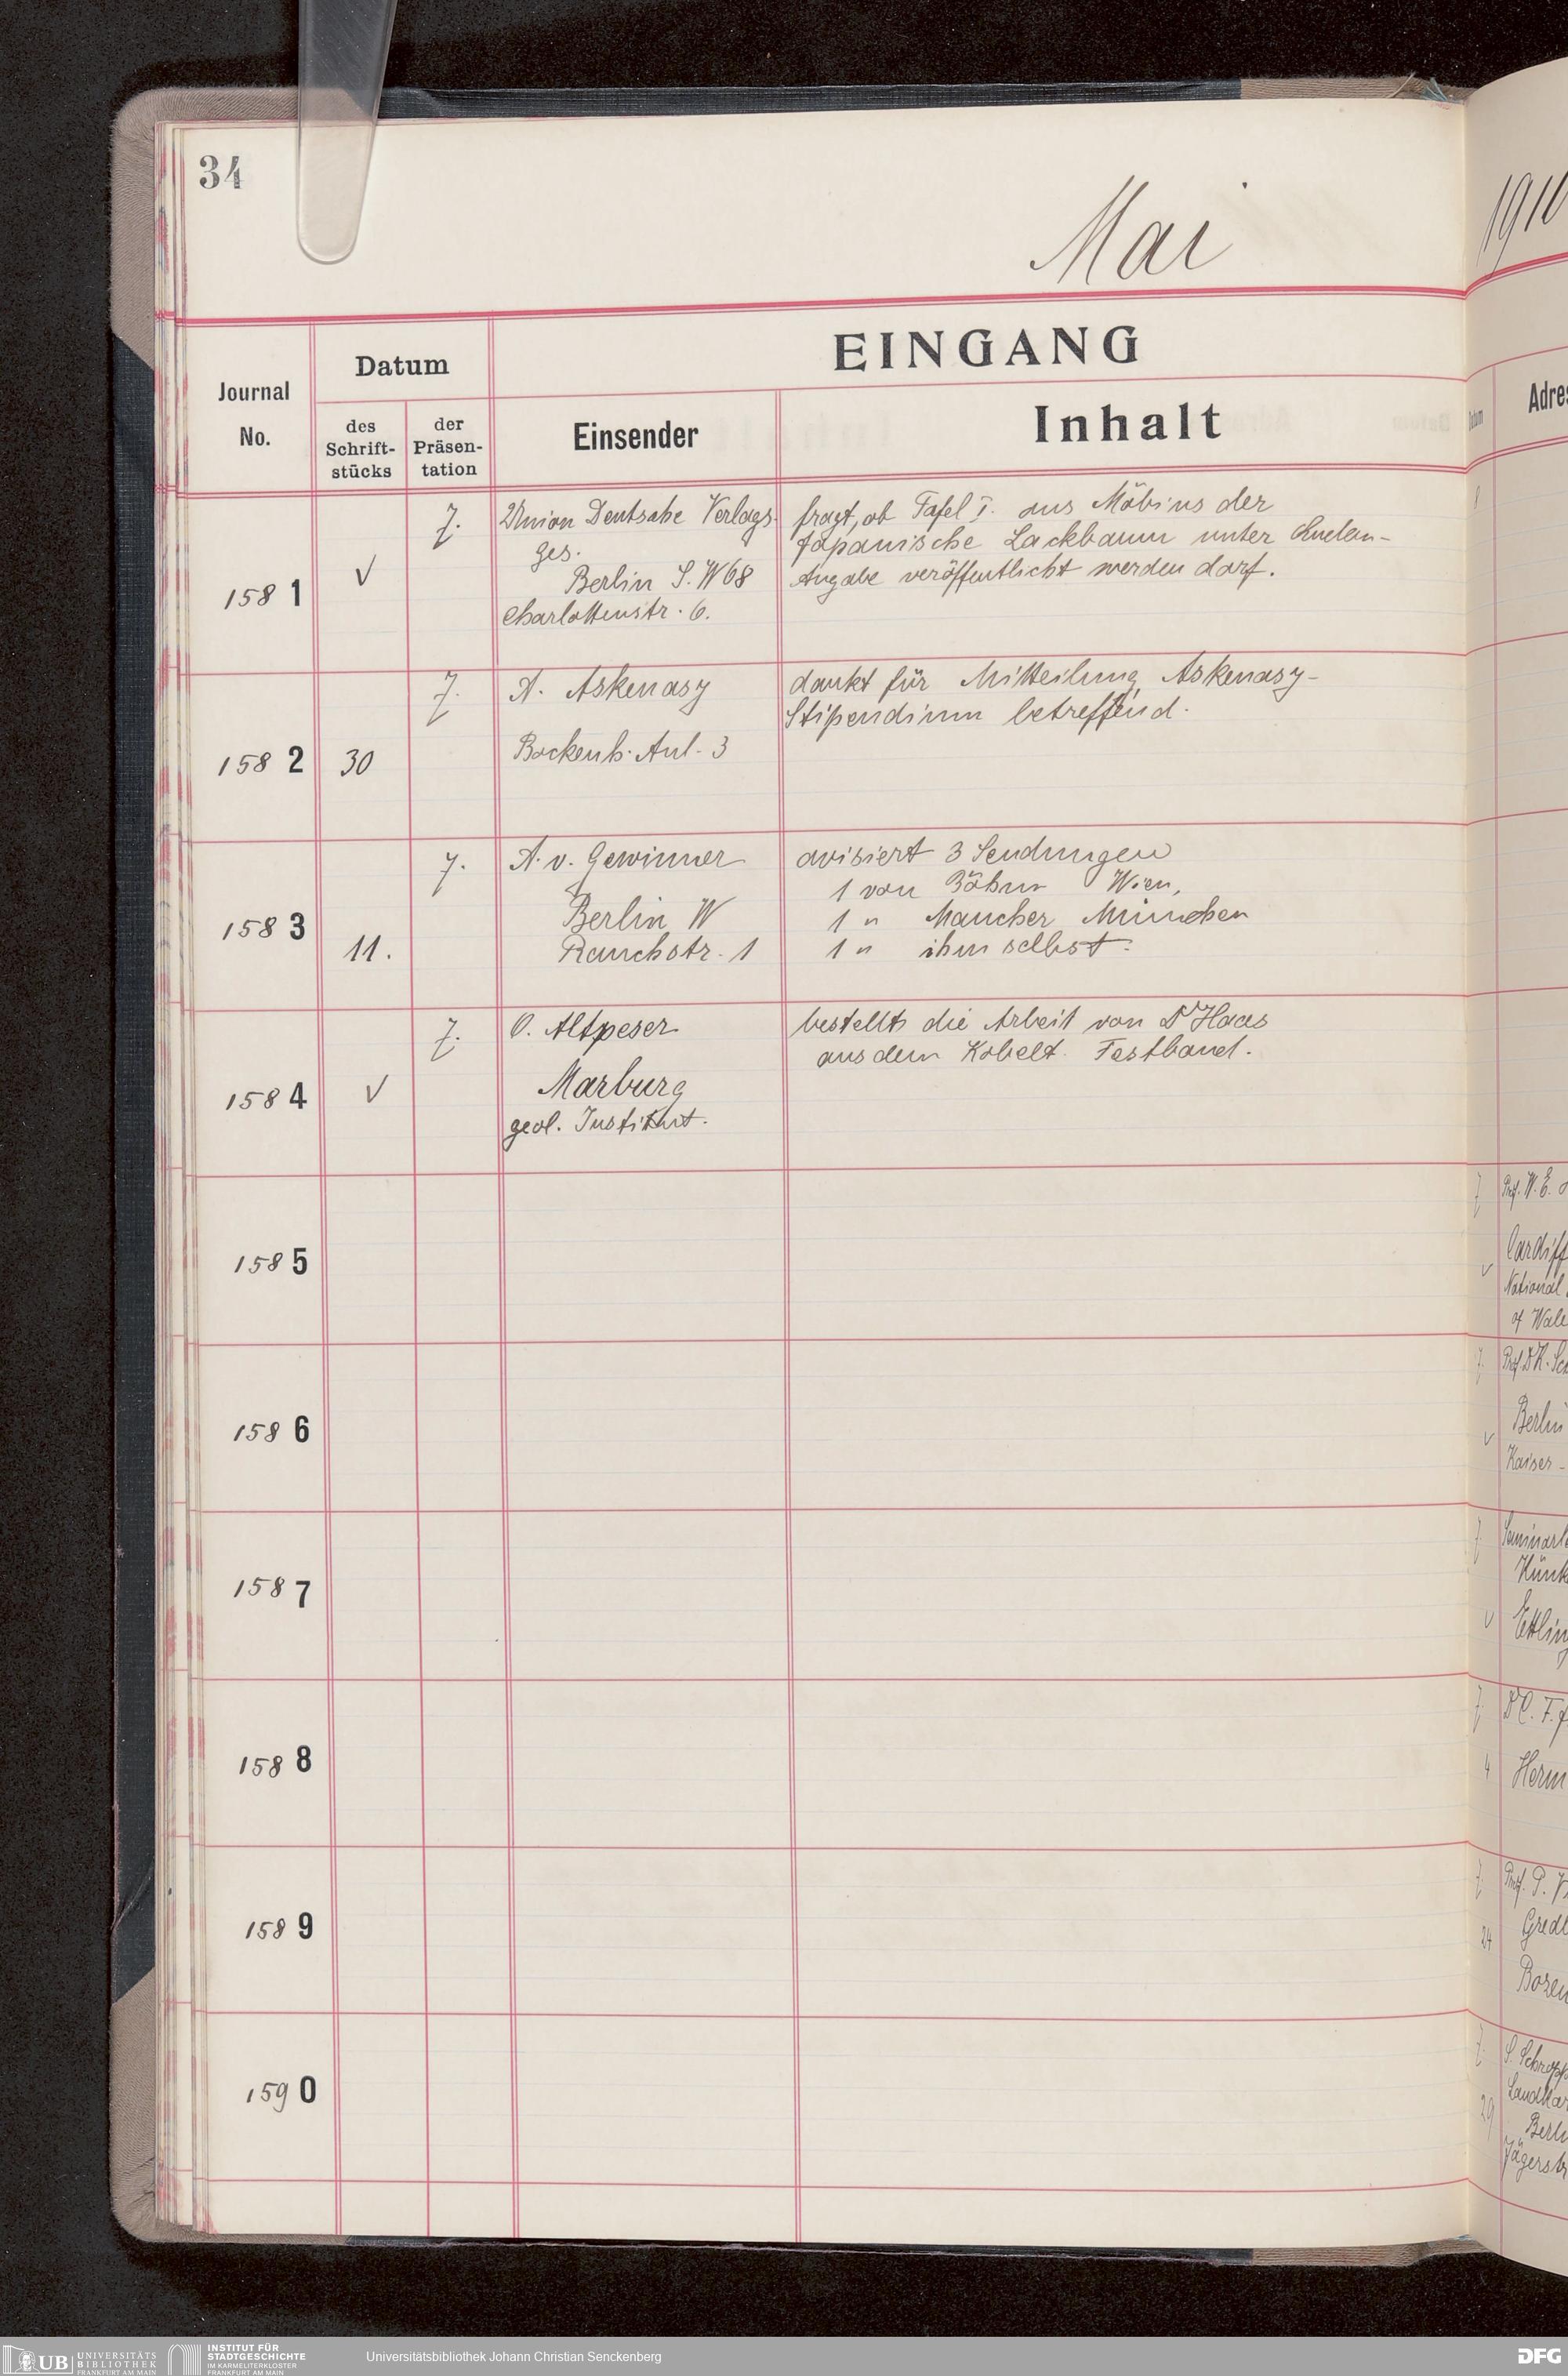 34
Mai
1910
EINGANG
Journal No.
Datum
des Schrift-stücks
der Präsen-tation
Einsender
Inhalt
Datum
Adres
1581
√
7.
Union Deutsche Verlags
ges.
Berlin S.W 68
Charlottenstr. 6.
fragt, ob Tafel I. aus Möbius der
Japanische Lackbaum unter
Angabe veröffentlicht werden darf.
1582
30
7.
A. Askenasy
Bockenh. Anl. 3
dankt für Mitteilung Askenasy-
Stipendium betreffend.
1583
11.
7.
A. v. Gwinner
Berlin W
Rauchstr. 1
avisiert 3 Sendungen
1 von Böhm Wien,
1 " Maucher München
1 " ihm selbst.
1584
√
7.
O. Altpeser
Marburg
geol. Institut.
bestellt die Arbeit von Dr Haas
aus dem Kobelt Festband.
1585
1586
1587
1588
1589
1590
7
Prf. W. E.
√
Cardiff
National
of Wale
7
√
Berlin
Kaiser-
7
Seminarl
Künk
√
Ettlin
7
Dr C. F.
4
Herm
7
Prof. P.
24
Gredl
Bozen
7
29
Landkar
Berli
Jägerst
UB UNIVERSITÄTS BIBLIOTHEK FRANKFURT AM MAIN
INSTITUT FÜR STADTGESCHICHTE IM KARMELITERKLOSTER FRANKFURT AM MAIN
Universitätsbibliothek Johann Christian Senckenberg
DFG